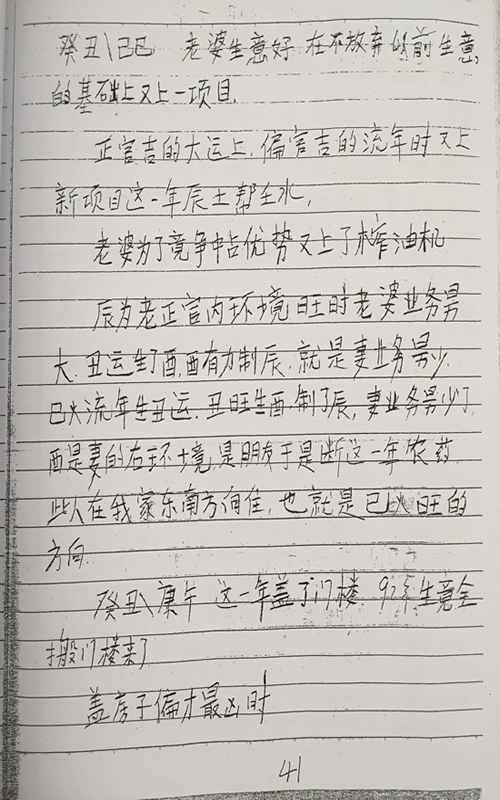 癸丑\己巳 老婆生意好 在不放弃以前生意
的基础上又上一项目
正官吉的大运上.偏官吉的流年时又上
新项目这一年辰土帮壬水,
老婆为了竞争中占优势又上了榨油机
辰为老正官内环境旺时老婆业务量
大.丑运生了酉,酉有力制辰.就是妻业务量少.
巳火流年生丑运.丑旺生酉.制了辰,妻业务量少了.
酉是妻的右环境,是朋友于是断这一年农药
些人在我家东南方向住,也就是巳火旺的
方向.
癸丑\庚午 这一年盖了门楼. 生意全
搬门楼来了
盖房子偏才最凶时
41